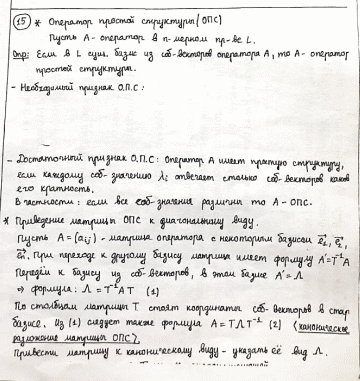 15 * Оператор простой структуры (ОПС)
Пусть A - оператор в n-мерном пр-ве L.
Опр: Если в L сущ. базис из соб-векторов оператора A, то A - оператор
простой структуры.
- Необходимый признак О.П.С:
- Достаточный признак О.П.С: Оператор A имеет простую структуру,
если каждому соб-значению λi отвечает столько соб-векторов какова
его кратность.
В частности: если все соб-значения различны то A - ОПС.
* Приведение матрицы ОПС к диагональному виду.
Пусть A = (aij) - матрица оператора с некоторым базисом e1, e2,
en. При переходе к другому базису матрица имеет формулу A' = T⁻¹A
Перейдём к базису из соб-векторов, в этом базисе A' = Λ
⇒ формула: Λ = T⁻¹AT (1)
По столбцам матрицы T стоят координаты соб-векторов в стар
базисе. Из (1) следует также формула A = TΛT⁻¹ (2) (каноническое
разложение матрицы ОПС).
Привести матрицу к каноническому виду - указать её вид Λ.